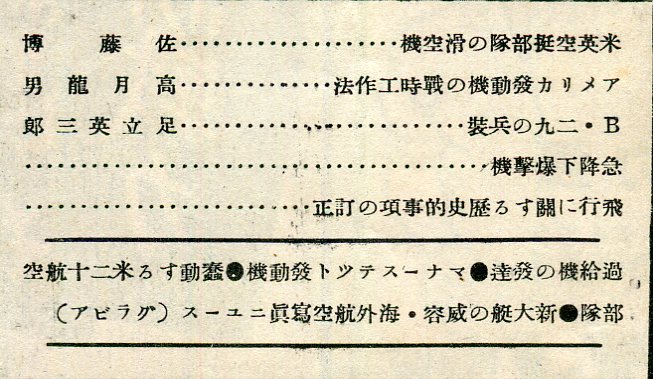 米英空挺部隊の滑空機・・・・・・・・・・・・・・・・・・・・・佐藤博
アメリカ發動機の戰時工作法・・・・・・・・・・・・・・・高月龍男
B・二九の兵裝・・・・・・・・・・・・・・・・・・・・・・・・・・・足立英三郎
急降下爆擊機・・・・・・・・・・・・・・・・・・・・・・・・・・・・・・・・・・・・・・・・・・・・
飛行に關する歷史的事項の訂正・・・・・・・・・・・・・・・・・・・・・・
過給機の發達●マナーステツト發動機●蠢動する米二十航空
部隊●新大艇の威容・海外航空寫眞ニユース(グラビア)